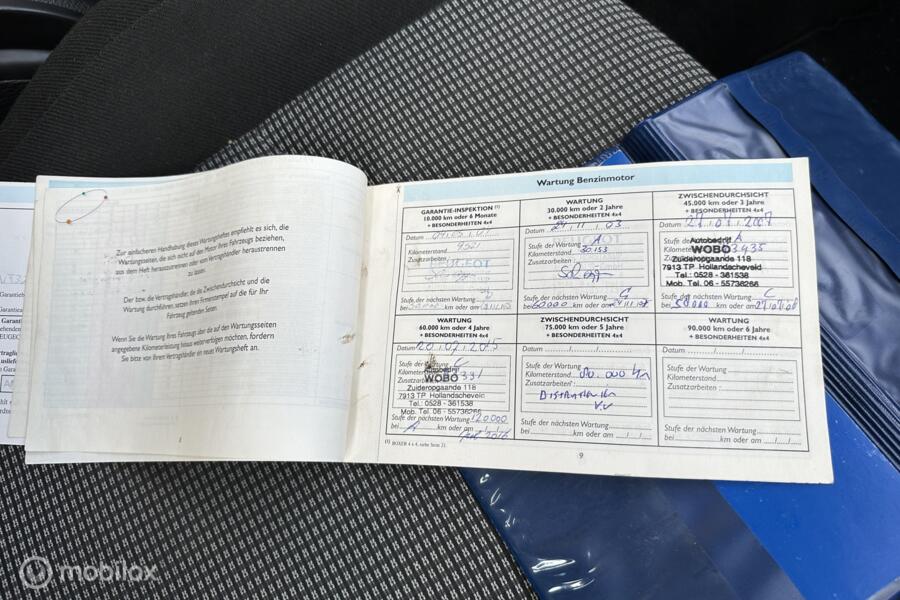 Zur einfacheren Handhabung dieses Wartungsheftes empfiehlt es sich, die
Wartungsseiten, die sich nicht auf den Motor Ihres Fahrzeugs beziehen,
aus dem Heft herauszutrennen oder vom Vertragshändler heraustrennen
zu lassen.
Der bzw. die Vertragshändler, die die Zwischendurchsicht und die
Wartung durchführen, setzen ihren Firmenstempel auf die für Ihr
Fahrzeug geltenden Seiten.
Wenn Sie die Wartung Ihres Fahrzeugs über die auf den Wartungsseiten
angegebene Kilometerleistung hinaus weiterverfolgen möchten, fordern
Sie bitte von Ihrem Vertragshändler ein neues Wartungsheft an.
1
Wartung Benzinmotor
GARANTIE-INSPEKTION (1)
10.000 km oder 6 Monate
+ BESONDERHEITEN 4x4
Datum
Kilometerstand 9521
Zusatzarbeiten :
PEUGEOT
Stufe der nächsten Wartung
bei km oder am
WARTUNG
30.000 km oder 2 Jahre
+ BESONDERHEITEN 4x4
Datum 24.11.03
Stufe der Wartung A
Kilometerstand 30.153
Zusatzarbeiten :
Stufe der nächsten Wartung C
bei 60000 km oder am
ZWISCHENDURCHSICHT
45.000 km oder 3 Jahre
+ BESONDERHEITEN 4x4
Datum 27.07.2007
Stufe A
Autobedrijf
WOBO
Zuideropgaande 118
7913 TP Hollandscheveld
Tel.: 0528 - 361538
Mob. Tel. 06 - 55736266
Stufe der nächsten Wartung C
bei km oder am
WARTUNG
60.000 km oder 4 Jahre
+ BESONDERHEITEN 4x4
Datum 20.07.2015
Stufe der Wartung C
Autobedrijf
WOBO
Zuideropgaande 118
7913 TP Hollandscheveld
Tel.: 0528 - 361538
Mob. Tel. 06 - 55736266
Stufe der nächsten Wartung 120000
bei A km oder am 2016
ZWISCHENDURCHSICHT
75.000 km oder 5 Jahre
+ BESONDERHEITEN 4x4
Datum
Stufe der Wartung
Kilometerstand 80.000 km
Zusatzarbeiten :
Stufe der nächsten Wartung
bei km oder am
WARTUNG
90.000 km oder 6 Jahre
+ BESONDERHEITEN 4x4
Datum
Stufe der Wartung
Kilometerstand
Zusatzarbeiten :
Stufe der nächsten Wartung
bei km oder am
(1) BOXER 4 x 4, siehe Seite 23.
9
mobilox